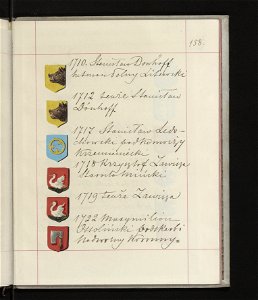 158.
1710. Stanisław Donhoff
hetman Polny Litewski
1712 tenże Stanisław
Dönhoff
1717 Stanisław Ledó-
chowski podkomorzy
Krzemieniecki
1718 Krzysztof Zawisza
Starosta Miński
1719 tenże Zawisza
1722 Maxymilian
Ossoliński Podskarbi
Nadworny Koronny.